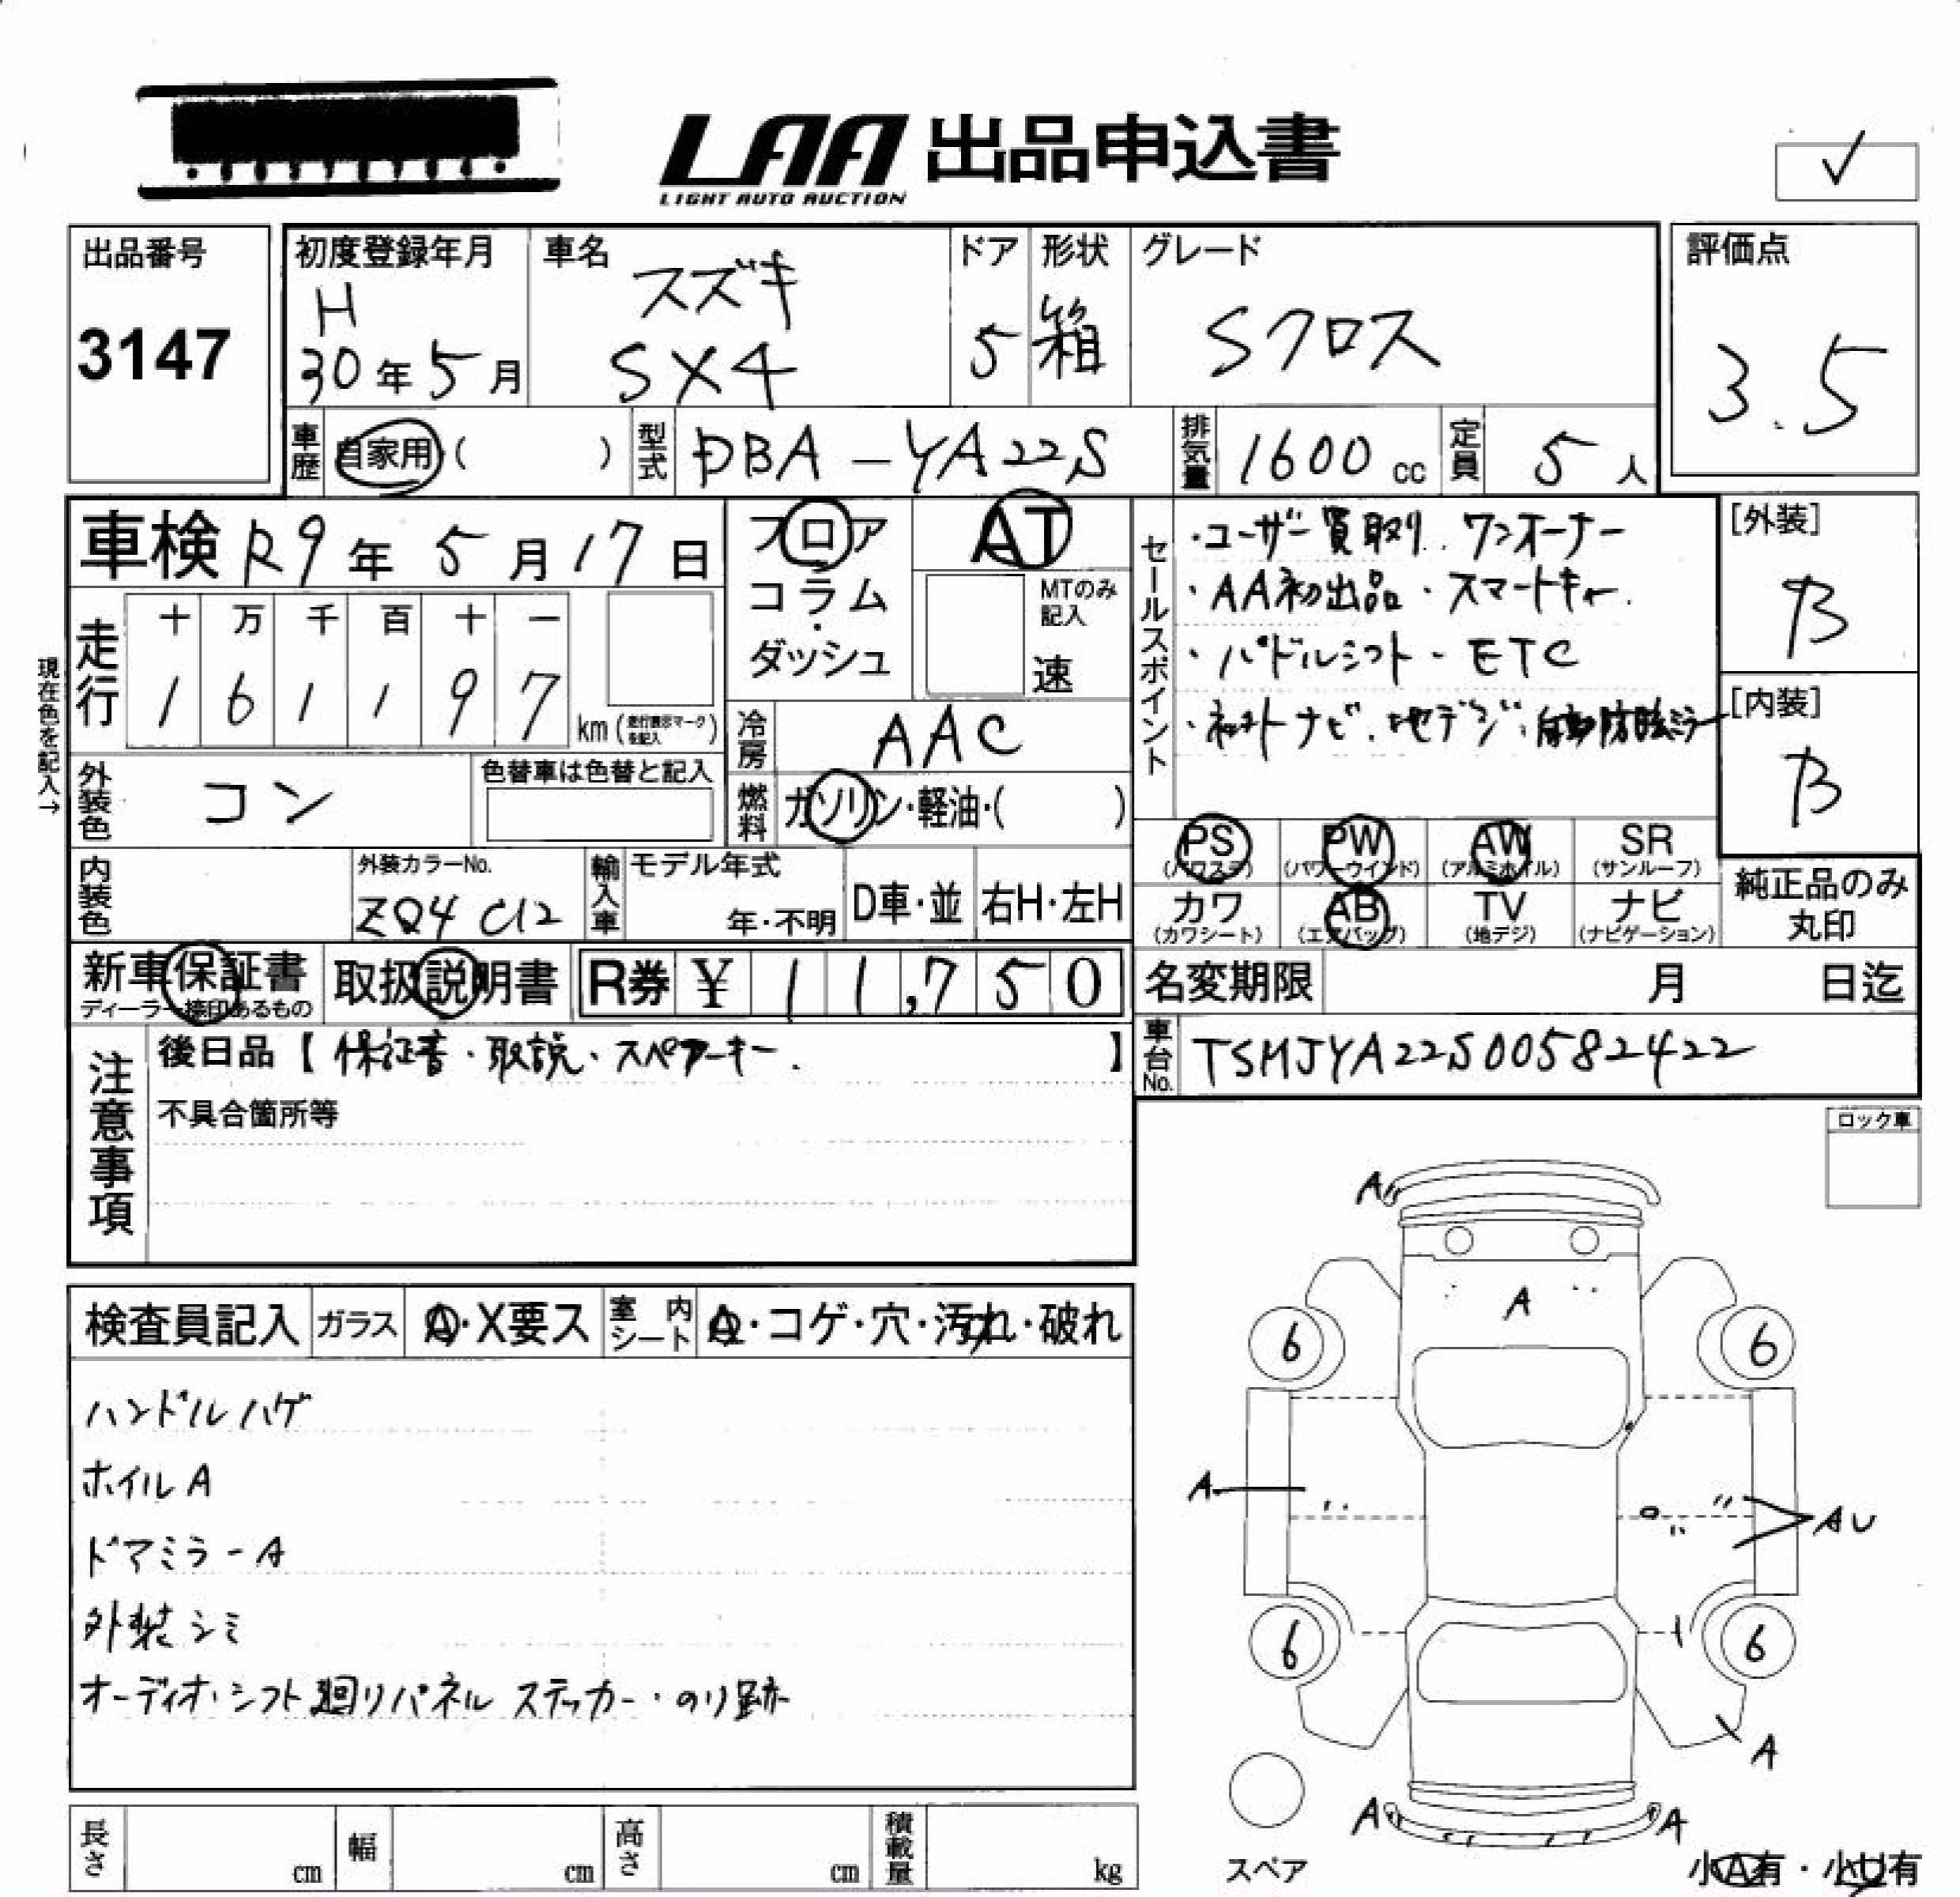 LAA 出品申込書
LIGHT AUTO AUCTION
✓
出品番号
3147
初度登録年月
H
30年5月
車名
スズキ
SX4
ドア
5
形状
箱
グレード
Sクロス
評価点
3.5
車歴 自家用( )
型式 DBA-YA22S
排気量 1600cc
定員 5人
車検 R9年5月17日
フロア
コラム
・
ダッシュ
AT
MTのみ
記入
速
セールスポイント
・ユーザー買取り. ワンオーナー
・AA初出品・スマートキー.
・パドルシフト・ETC
・ネット ナビ.地デジ.自動防眩ミラー
[外装]
B
[内装]
B
現在色を記入→
走行
十 万 千 百 十 一
1 6 1 1 9 7
km(走行表示マークを記入)
冷房 AAC
燃料 ガソリン・軽油・( )
外装色 コン
色替車は色替と記入
内装色
外装カラーNo.
ZQ4 C12
輸入車
モデル年式
年・不明
D車・並
右H・左H
PS (パワステ)
PW (パワーウインド)
AW (アルミホイル)
SR (サンルーフ)
カワ (カワシート)
AB (エアバッグ)
TV (地デジ)
ナビ (ナビゲーション)
純正品のみ
丸印
新車保証書
ディーラー捺印あるもの
取扱説明書
R券 ¥ 11,750
名変期限 月 日迄
車台No. TSMJYA22S00582422
注意事項
後日品【 保証書・取説、スペアーキー. 】
不具合箇所等
ロック車
検査員記入
ガラス A・X要ス
室内シート A・コゲ・穴・汚れ・破れ
ハンドルハゲ
ホイルA
ドアミラーA
外装シミ
オーディオ・シフト廻りパネル ステッカー・のり跡
A
A
6
6
A
AU
6
6
A
A
A
スペア
小A有・小U有
長さ cm
幅 cm
高さ cm
積載量 kg